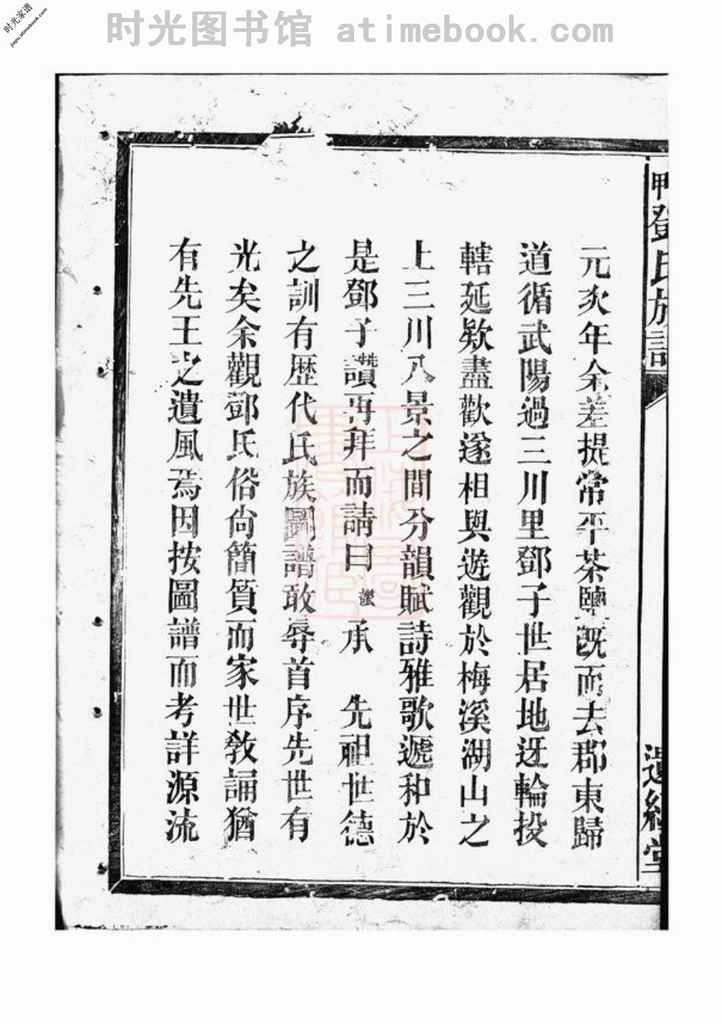 时光图书馆 atimebook.com
时光家谱
jiapu.atimebook.com
鄧氏族譜
元亥年余差提常平茶鹽旣而去郡東歸
道循武陽過三川里鄧子世居地迓輪投
轄延欵盡歡遂相與遊觀於梅溪湖山之
上三川八景之間分韻賦詩雅歌遞和於
是鄧子讚再拜而請曰 承 先祖世德
之訓有歷代氏族圖譜敢辱首序先世有
光矣余觀鄧氏俗尙簡質而家世敎誦猶
有先王之遺風焉因按圖譜而考詳源流
遺經堂